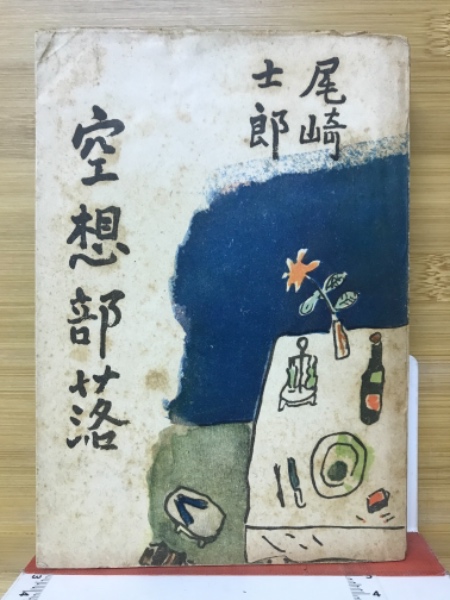 尾崎
士郎
空想部落